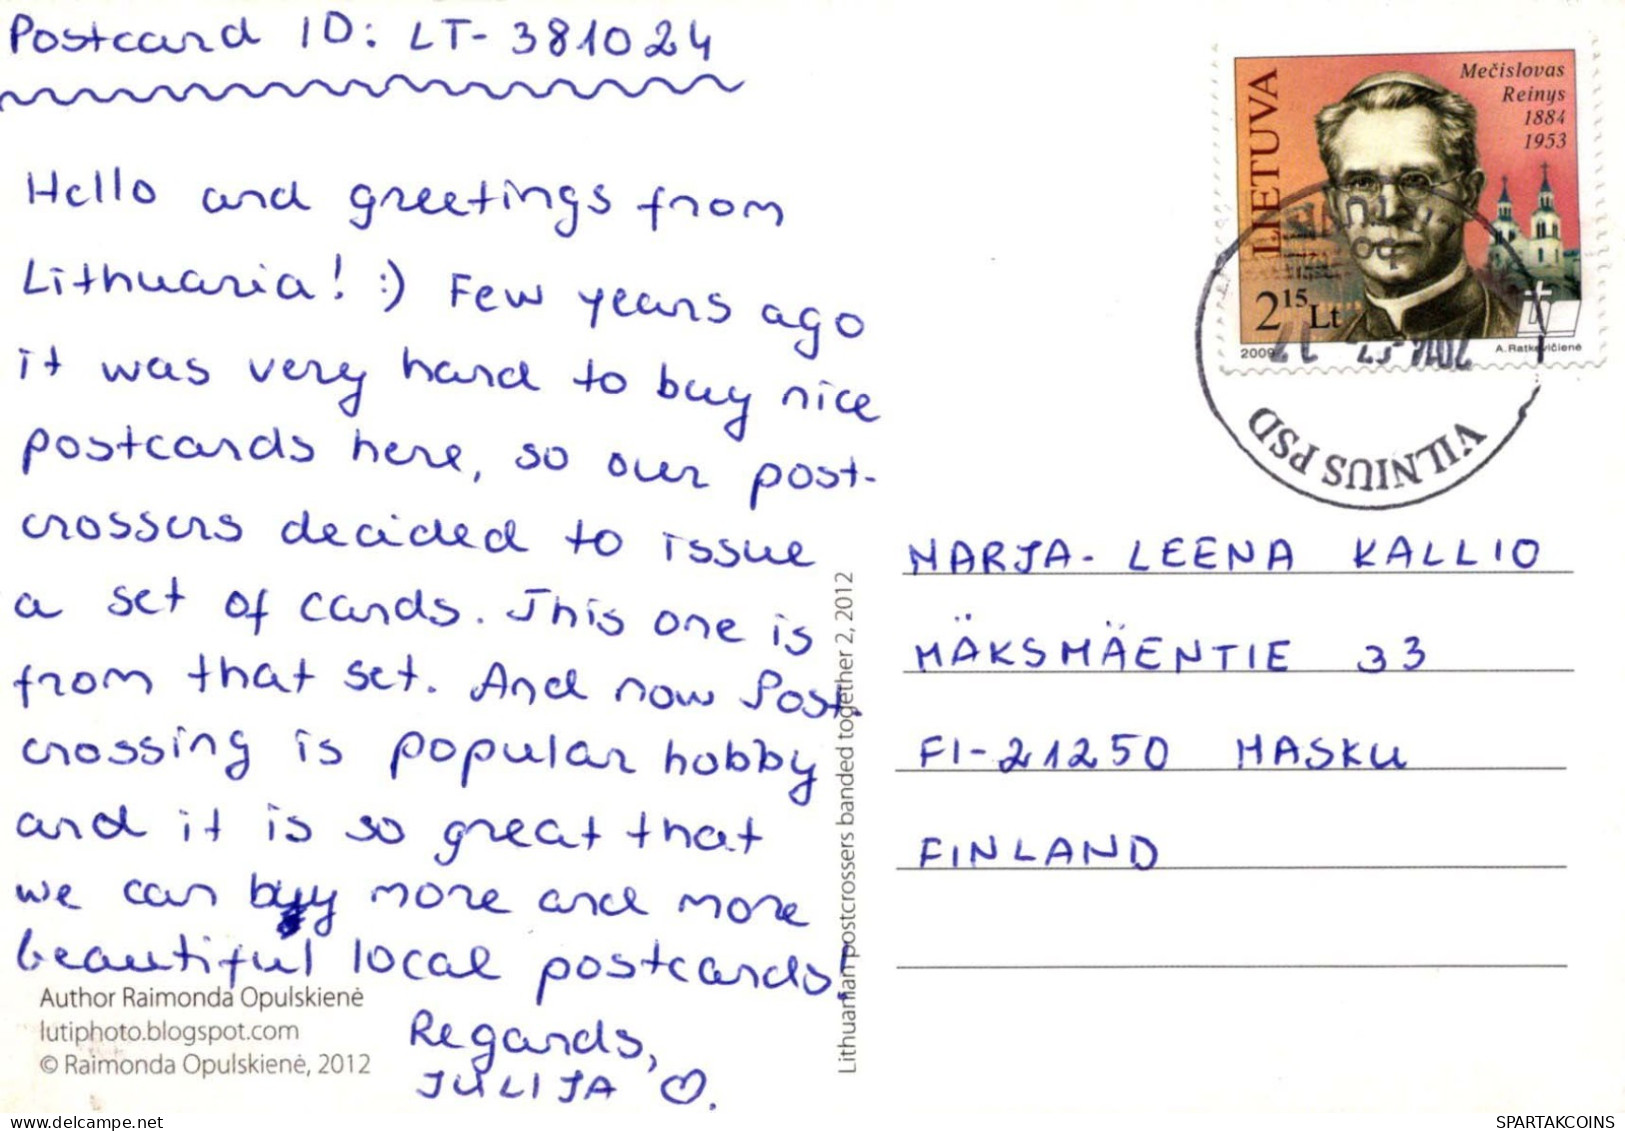 Postcard ID: LT-381024
Hello and greetings from
Lithuania! :) Few years ago
it was very hard to buy nice
postcards here, so our post-
crossers decided to issue
a set of cards. This one is
from that set. And now Post-
crossing is popular hobby
and it is so great that
we can buy more and more
beautiful local postcards!
Regards,
JULIJA
Author Raimonda Opulskienė
lutiphoto.blogspot.com
© Raimonda Opulskienė, 2012
Lithuanian postcrossers banded together 2, 2012
LIETUVA
Mečislovas
Reinys
1884
1953
2 15 Lt
2009
A. Ratkevičienė
VILNIUS PSD
MARJA-LEENA KALLIO
MÄKSMÄENTIE 33
FI-21250 MASKU
FINLAND
www.delcampe.net
SPARTAKCOINS